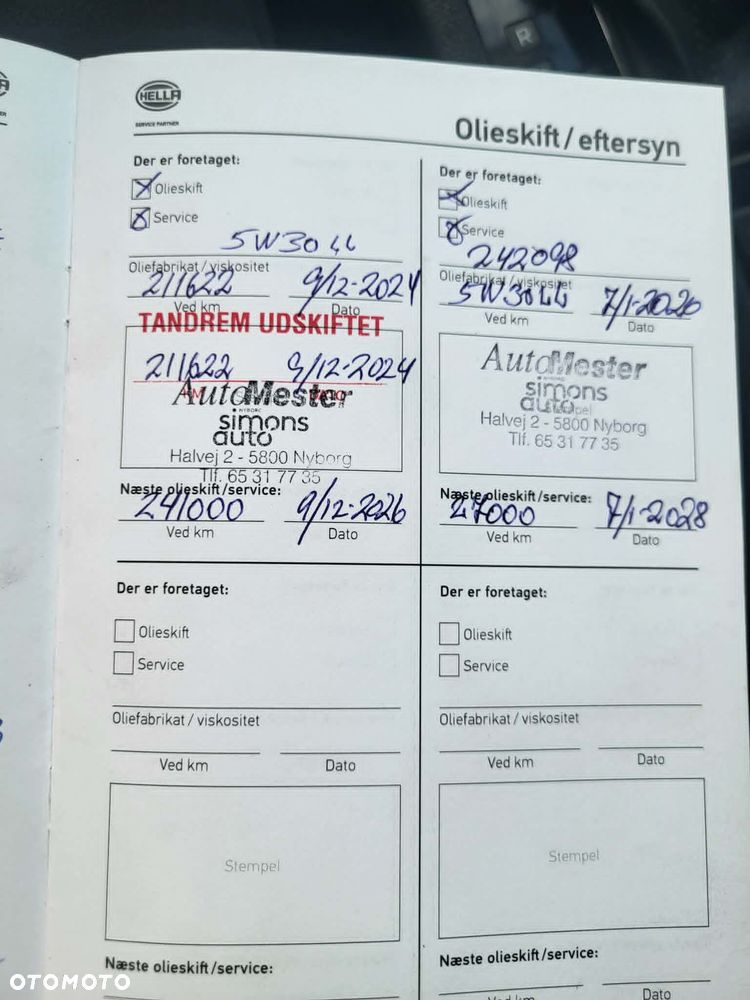 R
HELLA
SERVICE PARTNER
Olieskift / eftersyn
Der er foretaget:
Olieskift
Service
5W30 LL
Oliefabrikat / viskositet
211622 9/12-2024
Ved km Dato
TANDREM UDSKIFTET
211622 9/12-2024
KM
AutoMester
NYBORG
simons
auto
Halvej 2 - 5800 Nyborg
Tlf. 65 31 77 35
Næste olieskift/service:
241000 9/12-2026
Ved km Dato
Der er foretaget:
Olieskift
Service
242098
Oliefabrikat / viskositet
5W30 LL 7/1-2026
Ved km Dato
AutoMester
simons
auto
Halvej 2 - 5800 Nyborg
Tlf. 65 31 77 35
Næste olieskift/service:
27000 7/1-2028
Ved km Dato
Der er foretaget:
Olieskift
Service
Oliefabrikat / viskositet
Ved km Dato
Stempel
Næste olieskift/service:
Der er foretaget:
Olieskift
Service
Oliefabrikat / viskositet
Ved km Dato
Stempel
Næste olieskift/service:
Ved km Dato
OTOMOTO